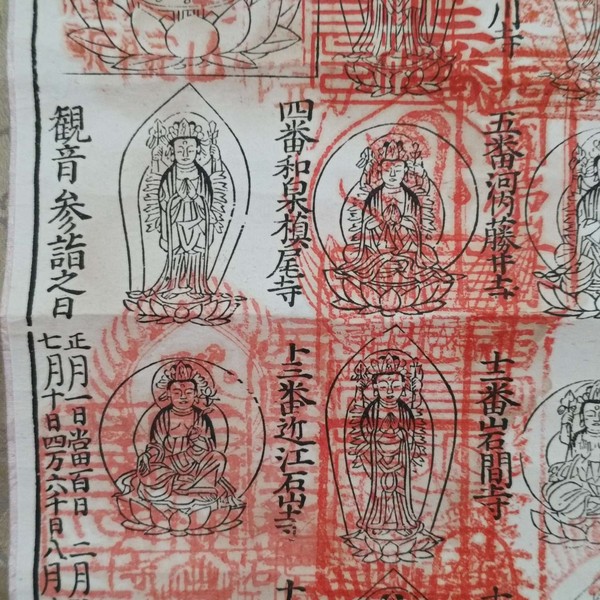 川寺
五番河内藤井寺
四番和泉槇尾寺
観音参詣之日
十二番岩間寺
十三番近江石山寺
正月一日當百日 二月
七月十日四万六千日八月
十
十